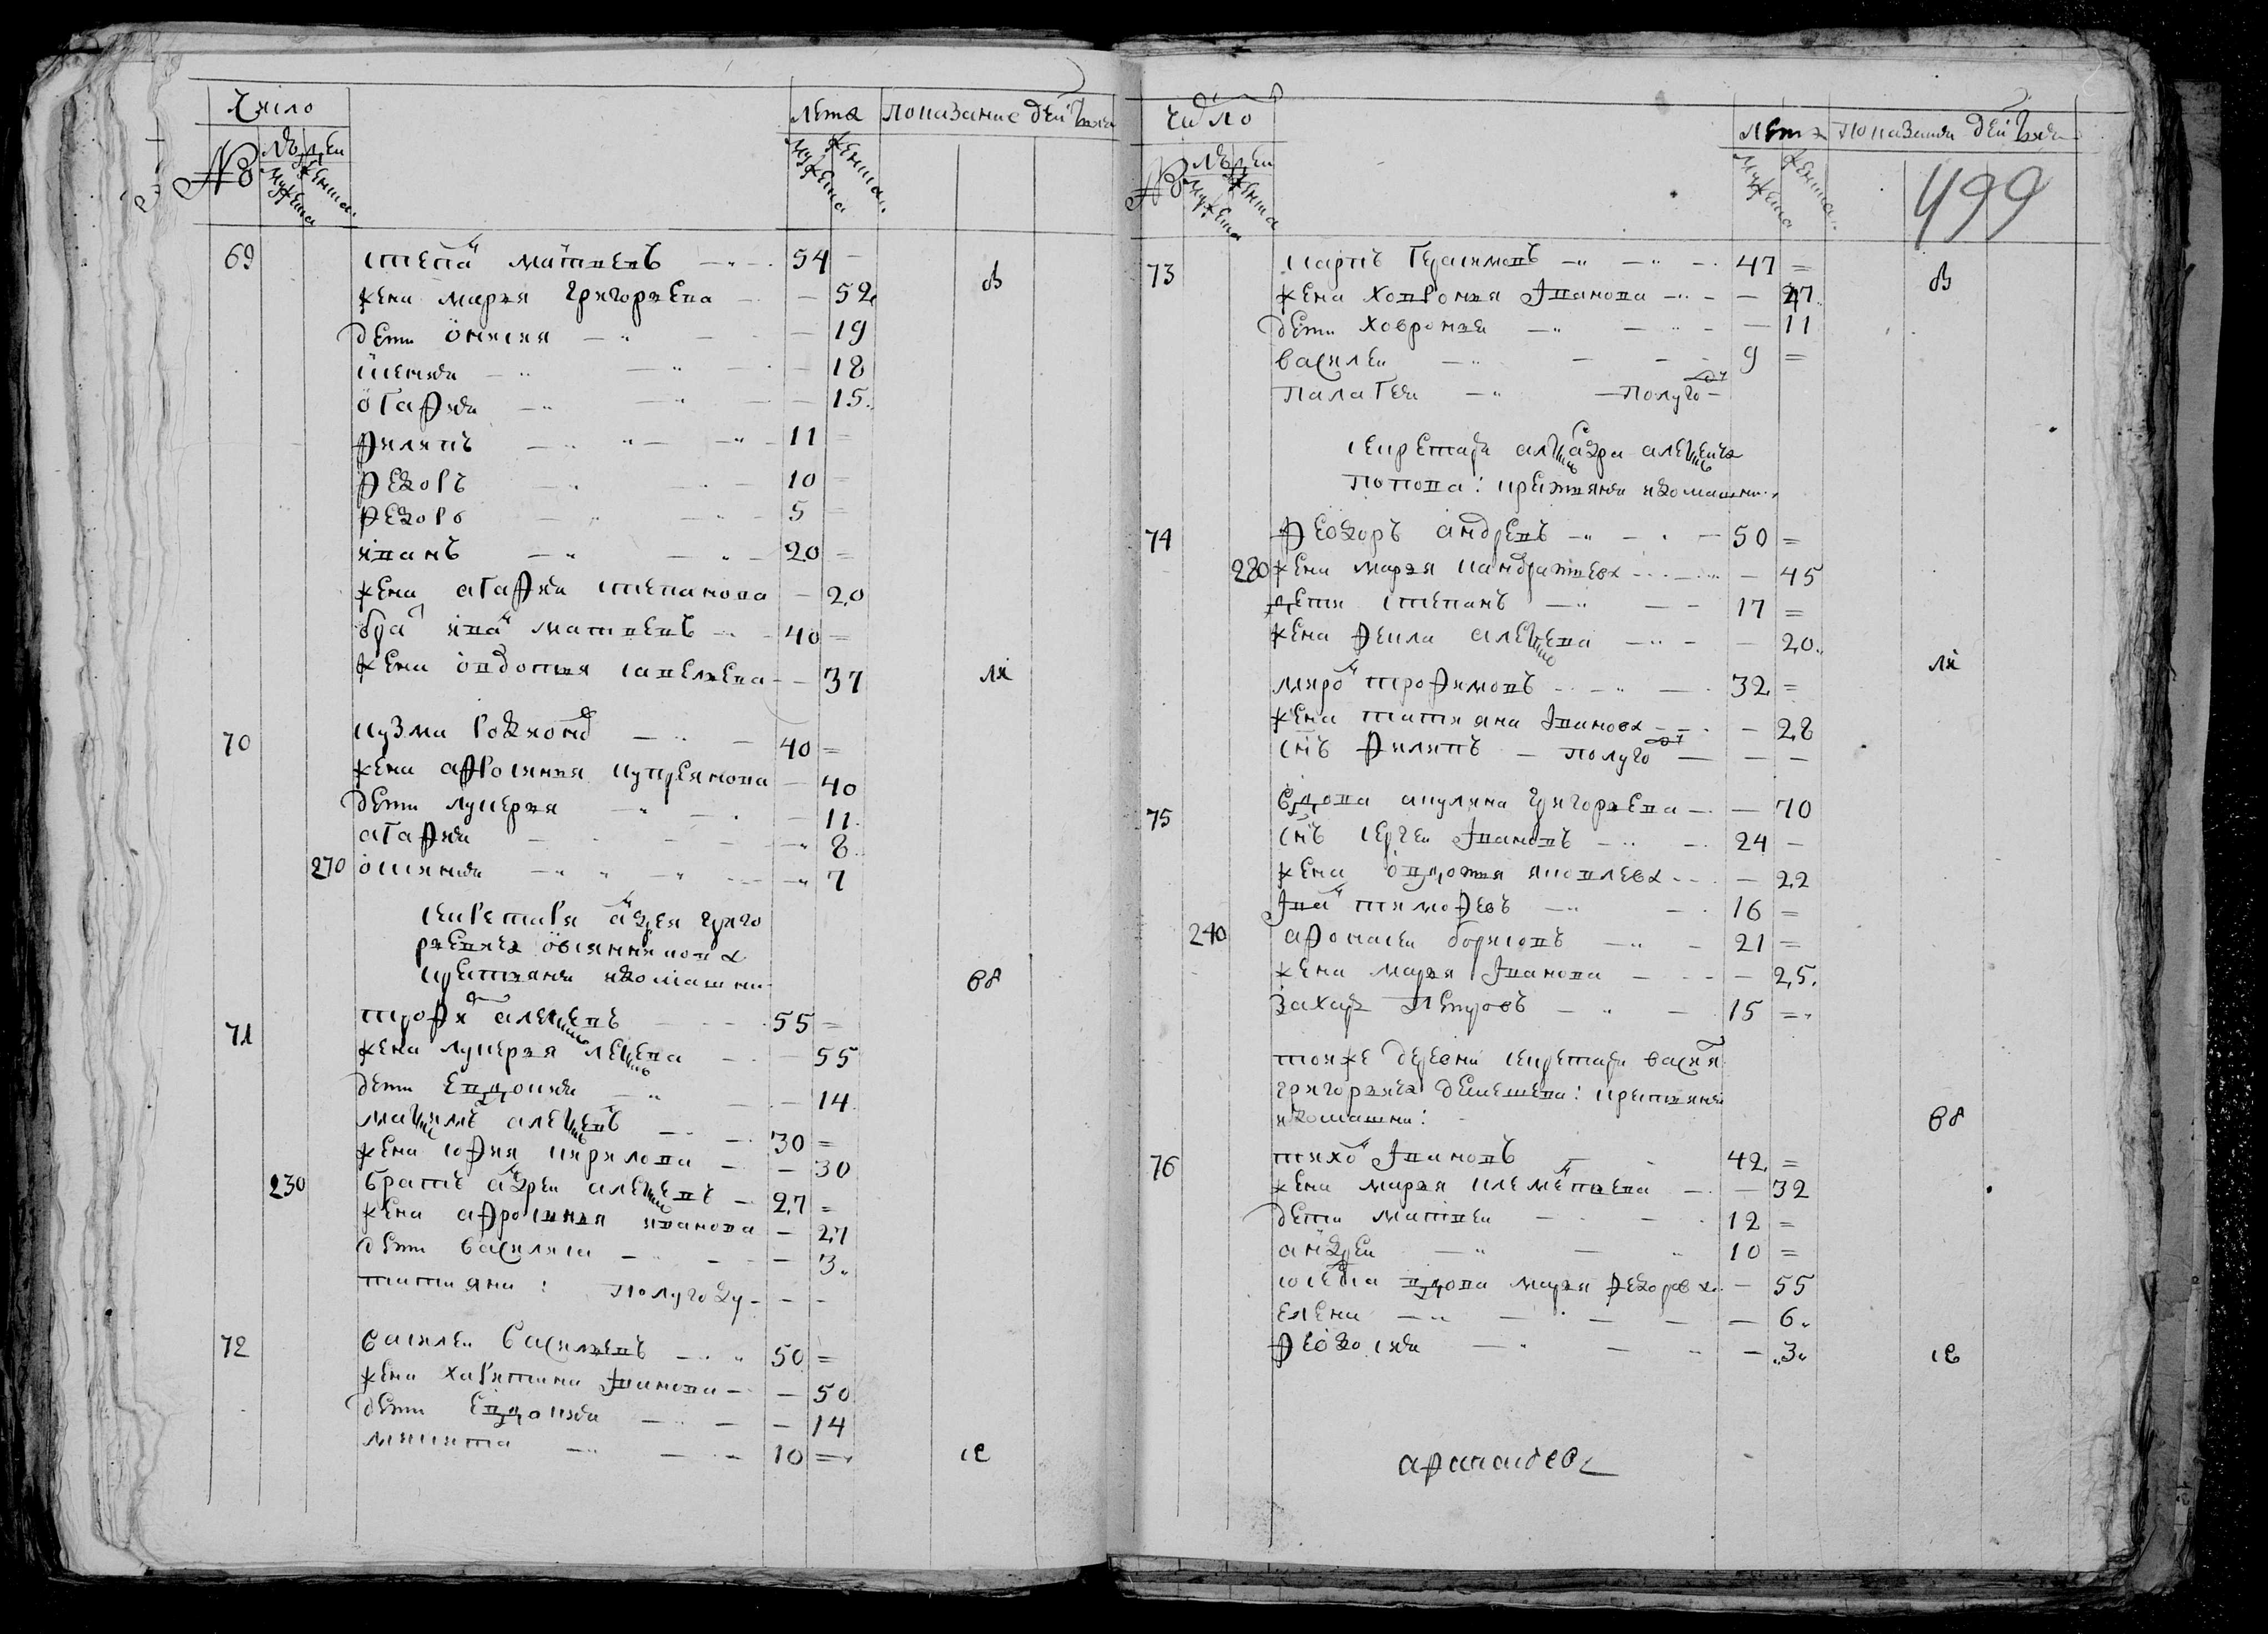 Число
Лета
Показание действа
№
людей
мужеска
женска
мужеска
женска
69 степанъ матвеевъ 54
в
жена марья григорьева 52
дети онисия 19
18
огафия 15
филипъ 11
федоръ 10
федоръ 5
иванъ 20
жена агафия степанова 20
братъ иванъ матвеевъ 40
жена овдотья савельева 37
ли
70 кузма родионовъ 40
жена афросинья куприянова 40
дети лукерья 11
агафия 8
270 7
секретаря андрея григо
рьевича овсянникова
крестьяня и домашни
вв
71 трофимъ алексеевъ 55
жена лукерья алексеева 55
дети евдокия 14
максимъ алексеевъ 30
жена софия кирилова 30
230 братъ андрей алексеевъ 27
жена афросиния иванова 27
дети василиса 3
татияна: полугоду
72 василей васильевъ 50
жена харитина иванова 50
дети евдокия 14
никита 10
се
Число
Лета
Показания действия
№
людей
мужеска
женска
мужеска
женска
499
73 карпъ герасимовъ 47
в
жена ховронья иванова 47
дети ховронья 11
василей 9
палагея полугоду
секретаря александра алексеевича
попова: крестьяня и домашни
74 феодоръ андреевъ 50
280 жена марья кандратьева 45
дети степанъ 17
жена фекла алексеева 20
ли
миронъ трофимовъ 32
жена татияна иванова 28
сынъ филипъ полугоду
75 вдова акулина григорьева 70
сынъ сергей ивановъ 24
жена овдотья яковлева 22
иванъ тимофеевъ 16
240 афонасей борисовъ 21
жена марья иванова 25
захаръ петровъ 15
тоя же деревни секретаря василия
григорьевича демешева: крестьяня
и домашни:
вв
76 тихонъ ивановъ 42
жена марья клементьева 32
дети матвей 12
андрей 10
соседка вдова марья федорова 55
елена 6
феодосия 3
се